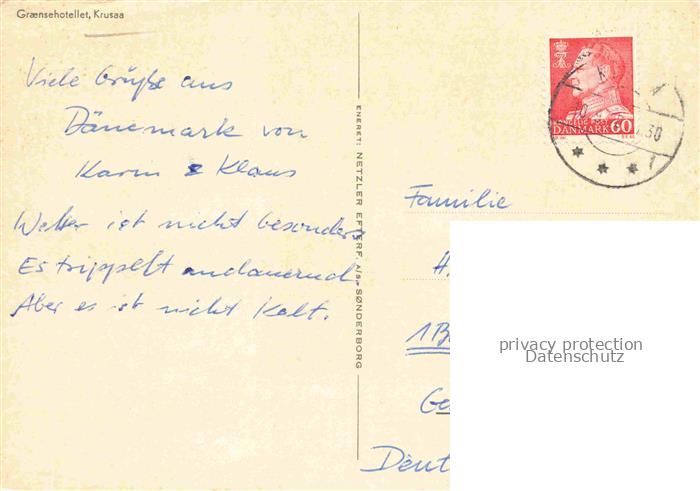 Grænsehotellet, Krusaa
Viele Grüße aus
Dänemark von
Karin & Klaus
Wetter ist nicht besonders
Es trippelt andauernd.
Aber es ist nicht Kalt.
ENERET: NETZLER EFTERF. A/S. SØNDERBORG
DANMARK 60
Familie
H.
1 B
Ge
Deut
privacy protection
Datenschutz